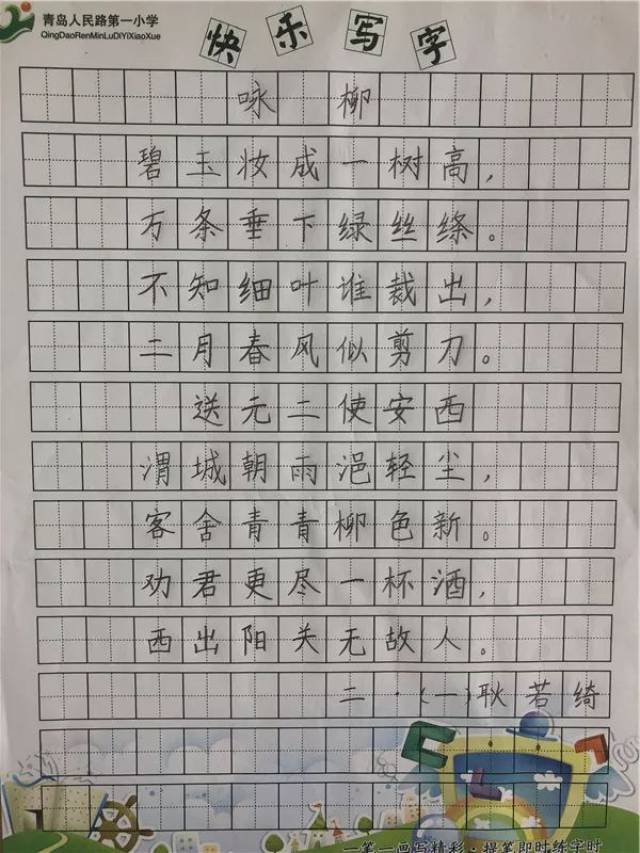 青岛人民路第一小学
QingDaoRenMinLuDiYiXiaoXue
快乐写字
咏柳
碧玉妆成一树高，
万条垂下绿丝绦。
不知细叶谁裁出，
二月春风似剪刀。
送元二使安西
渭城朝雨浥轻尘，
客舍青青柳色新。
劝君更尽一杯酒，
西出阳关无故人。
二·(一)耿若绮
一笔一画写精彩·提笔即时练字时